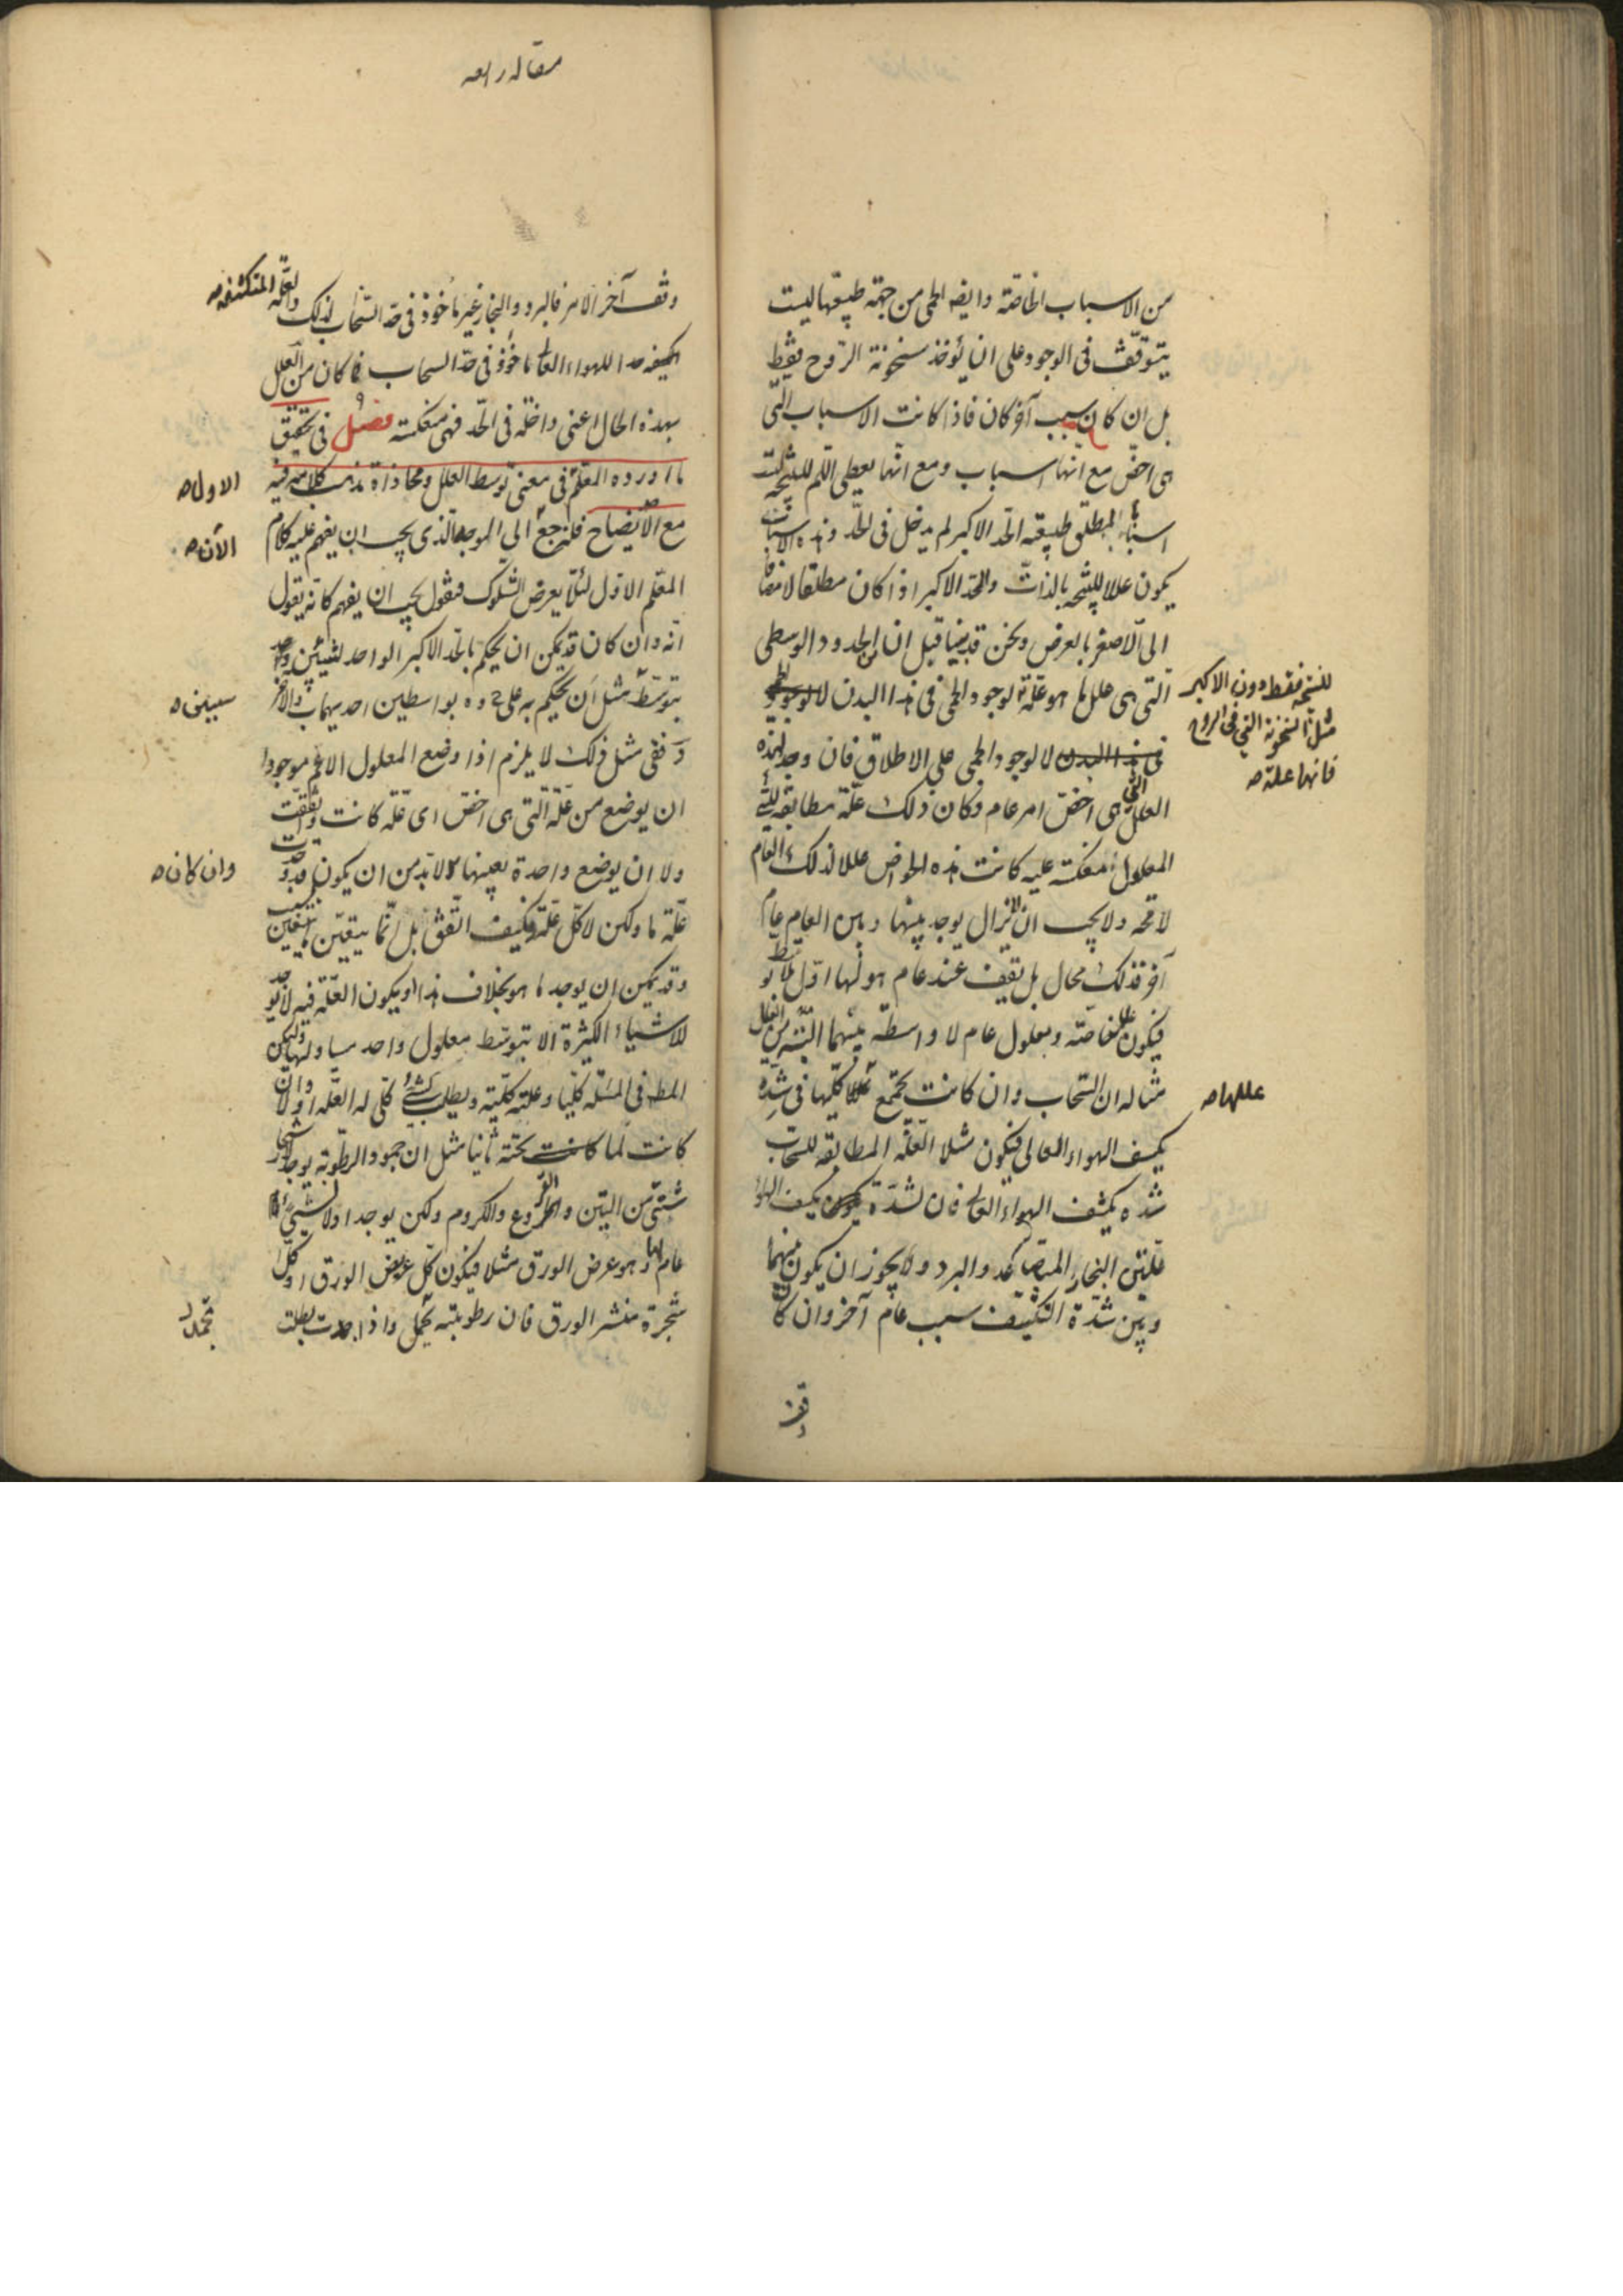 من الاسباب الخاصة وايضا الحمى من جهة طبيعتها ليست
يتوقف فى الوجود على ان يؤخذ سخونة الروح فقط
بل ان كان سبب آخر كان فاذا كانت الاسباب التى
هى اخص مع انها اسباب ومع انها يعطى اللم للنتيجة ليست
اسبابا لمطلق طبيعة الحد الاكبر لم يدخل فى الحد وهذه الاسباب
يكون عللا للنتيجة بالذات وللحد الاكبر اذا كان مطلقا لا مضافا
الى الاصغر بالعرض ونحن قد بينا قبل ان من الحدود الوسطى
التى هى علل ما هو علة لوجود الحمى فى هذا البدن لا
للنتيجة فقط دون الاكبر
مثل السخونة التى فى الروح
فانها علة
لا لوجود الحمى على الاطلاق فان وجد لهذه
العلل التى هى اخص امر عام وكان ذلك علة مطابقة للشئ
المعلول منعكسة عليه كانت هذه الخواص عللا لذلك العام
لا محة ولا يجب ان لا تزال يوجد بينها وبين العام عام
آخر فذلك محال بل يقف عند عام هو لها اول بلا توسط
فيكون علل خاصة ومعلول عام لا واسطة بينهما البتة من العلل
مثاله ان السحاب وان كانت تجتمع عللها كلها فى شدة
عللها
تكثف الهواء العالى فيكون مثلا العلة المطابقة للسحاب
شدة تكثف الهواء العالى فان لشدة تكثف الهواء
علتين البخار المتصاعد والبرد ولا يجوز ان يكون بينهما
وبين شدة التكثيف سبب عام آخر وان كان
وقف
مقاله رابعه
وقف آخر الامر فالبرد والبخار غير مأخوذ فى حد السحاب لذلك والعلة المنكشفة
للهواء العالى مأخوذ فى حد السحاب فما كان من العلل
بهذه الحال اعنى داخلة فى الحد فهى منعكسة فصل و فى تحقيق
ما اورده المعلم فى معنى توسط العلل ومحاذاة مذهب كلامه فيه
الاول
مع الايضاح فلنرجع الى الموجه الذى يجب ان يفهم عليه كلام
الآن
المعلم الاول لئلا يعرض الشكوك فنقول يجب ان يفهم كانه يقول
انه وان كان قد يمكن ان يحكم بالحد الاكبر الواحد لشيئين واحد
بتوسط مثل ان يحكم به على ح و ه بواسطين احديهما ب والاخر
سببين
د ففى مثل ذلك لا يلزم اذا وضع المعلول الاعم موجودا
ان يوضع من علة التى هى اخص اى علة كانت واتفقت
ولا ان يوضع واحدة بعينها لا بد من ان يكون قد وجدت
وان كان
علة ما ولكن لا كل علة وكيف اتفق بل انما يتعين بسبب
وقد يمكن ان يوجد ما هو بخلاف هذا ويكون العلة فيه لا توجد
للاشياء الكثيرة الا بتوسط معلول واحد مساو لها وليكن
المط فى المسئلة كليا وعلته كلية ويطلب لشئ كلى له العلة اولا وان
كانت لما تحته ثانيا مثل ان جمود الرطوبة يوجد لاشجار
شتى من التين والخروع والكروم ولكن يوجد اولا لشئ
عام لها وهو عرض الورق مثلا فيكون كل عريض الورق او كل
شجرة منتشر الورق فان رطوبته تحمل واذا جمدت بطلت
تجمد